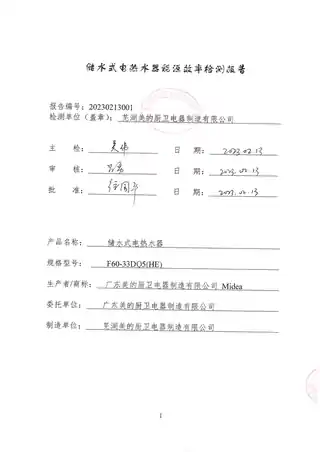 储水式电热水器能源效率检测报告
报告编号：20230213001
检测单位（盖章）：芜湖美的厨卫电器制造有限公司
主 检： 日 期：2023.02.13
审 核： 日 期：2023.02.13
批 准： 日 期：2023.02.13
产品名称： 储水式电热水器
规格型号： F60-33DQ5(HE)
生产者/商标： 广东美的厨卫电器制造有限公司 Midea
委托单位： 广东美的厨卫电器制造有限公司
制造单位： 芜湖美的厨卫电器制造有限公司
1